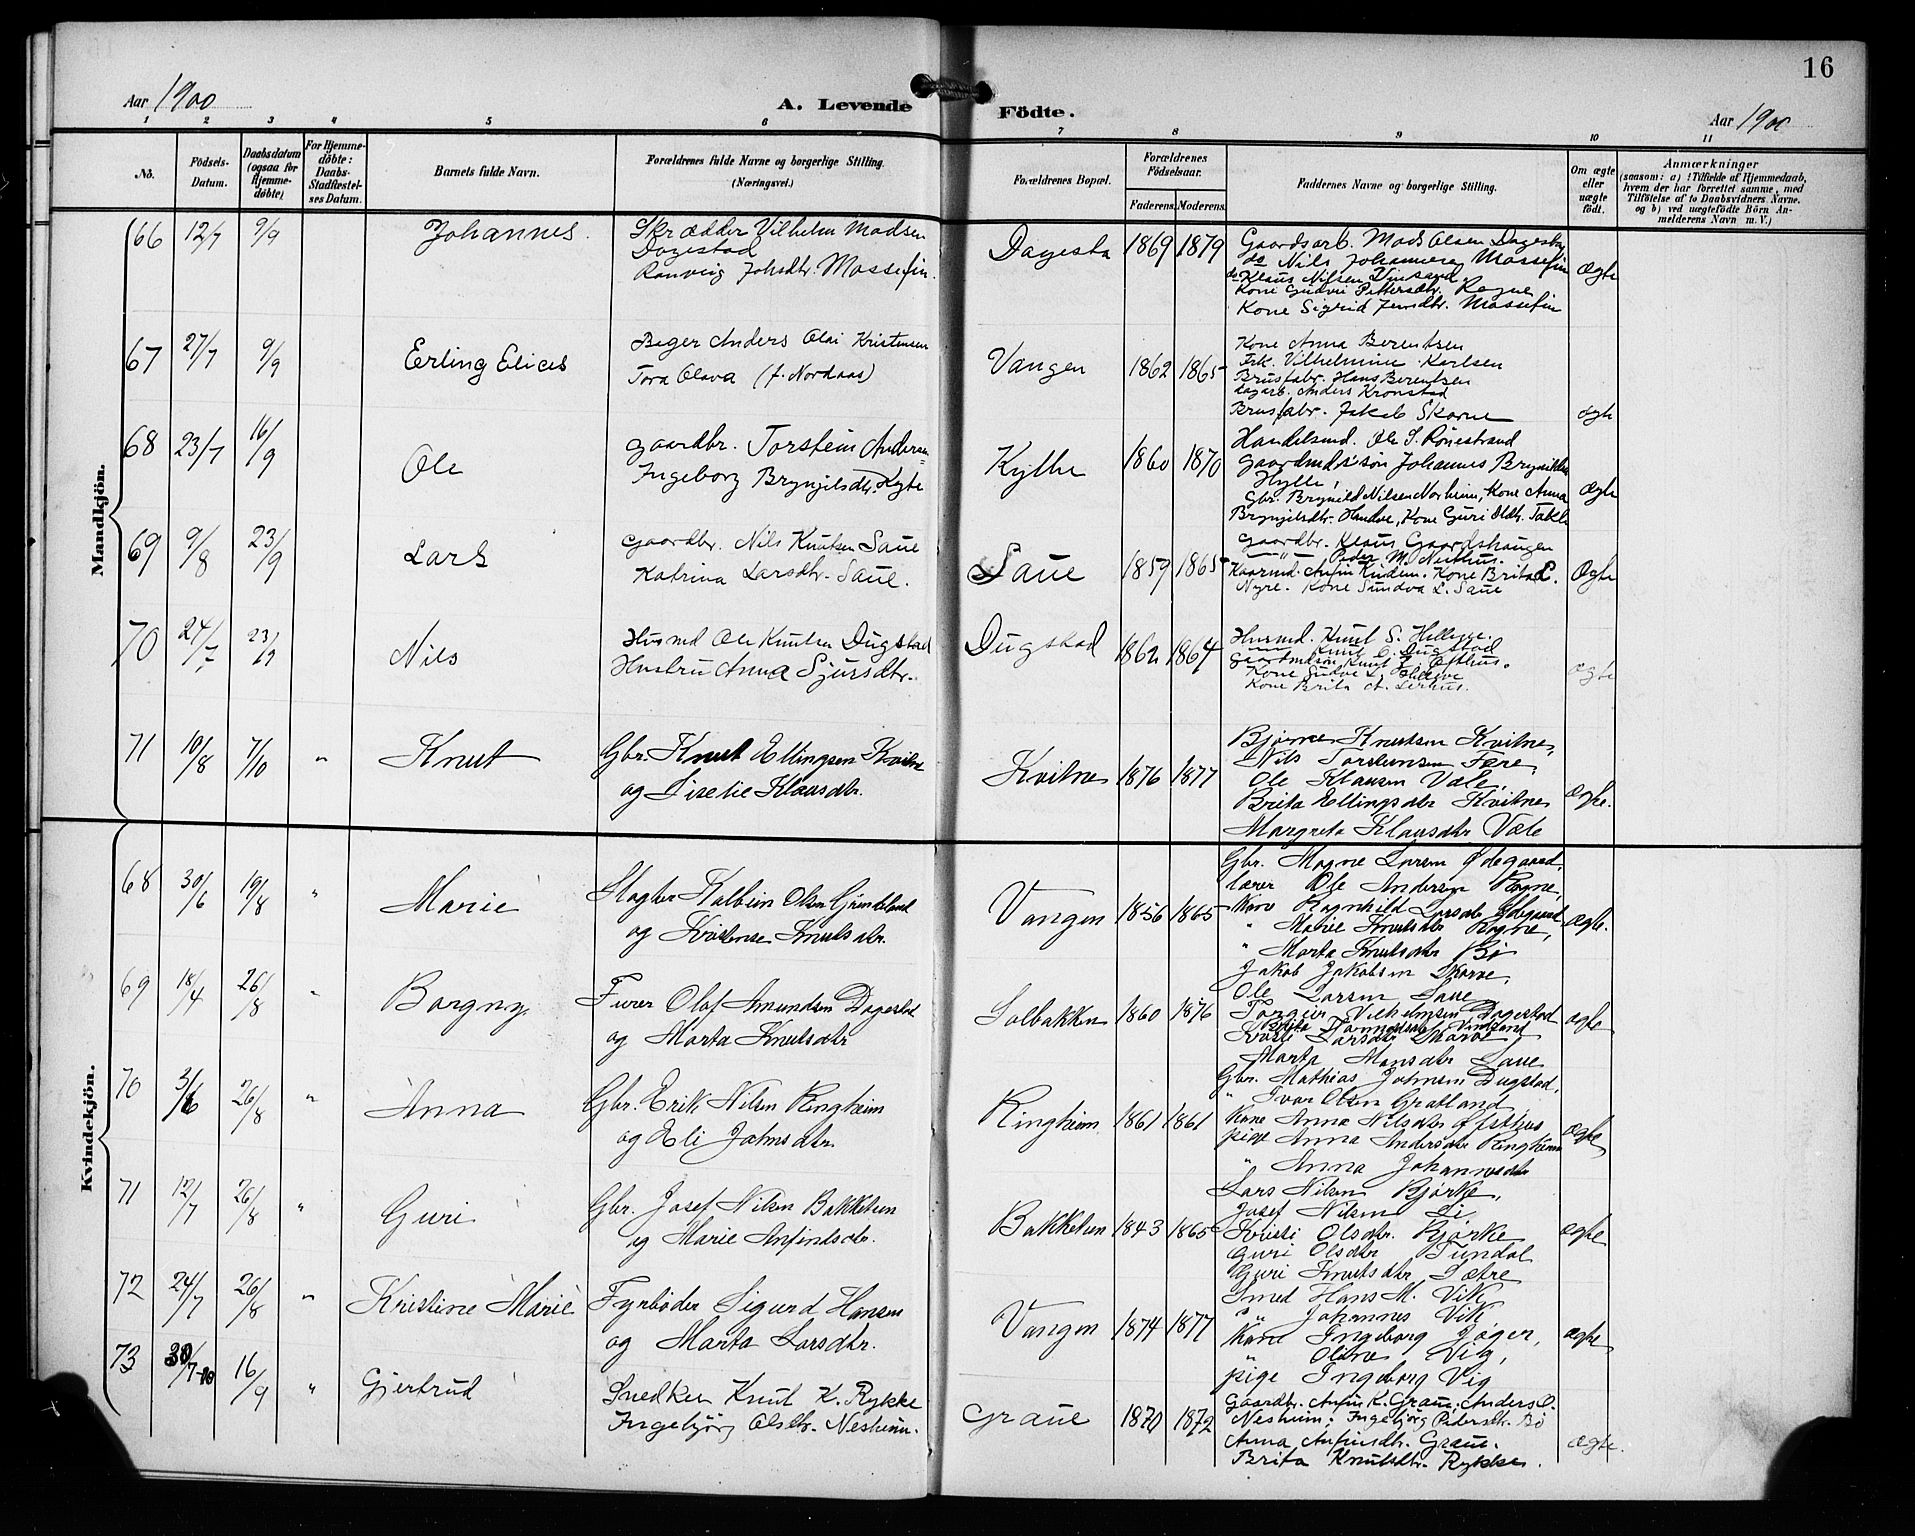 16
Aar 1900
A. Levende Födte.
Aar 1900
1 2 3 4 5 6 7 8 9 10 11
No.
Födsels-Datum.
Daabsdatum (ogsaa for Hjemme-döbte)
For Hjemme-döbte: Daabs-Stadfæstel-ses Datum.
Barnets fulde Navn.
Forældrenes fulde Navne og borgerlige Stilling.
(Næringsvei.)
Forældrenes Bopæl.
Forældrenes Födselsaar.
Faderens. Moderens.
Faddernes Navne og borgerlige Stilling.
Om ægte eller uægte födt.
Anmærkninger
(saasom: a) i Tilfælde af Hjemmedaab,
hvem der har forrettet samme, med
Tilföielse af to Daabsvidners Navne.
og b) ved uægtefödte Börn An-
melderens Navn m. V.)
Mandkjön.
66 12/7 9/9 Johannes. Skrædder Vilhelm Madsen
Dagestad
Ranveig Johsdtr. Mossefin.
Dagesta 1869 1879
Gaardsarb. Mads Olsen
do Nils Johannesen Mossefin
do Klaus Nilsen Vinsand
Kone Gudvei Pettersdtr. Rogne
Kone Sigrid Jensdtr. Mossefin
ægte
67 27/7 9/9 Erling Elias
Bager Anders Olai Kristensen
Tora Olava (f. Nordaas)
Vangen 1862 1865
Kone Anna Berentsen
Frk. Vilhelmine Karlsen
Brusfabr. Hans Berentsen
Dagarb. Anders Kronstad
Brusfabr. Jakob Skorve
ægte
68 23/7 16/9 Ole
Gaardbr. Torstein Andersen
Ingeborg Brynjelsdtr. Kyte
Kythe 1860 1870
Handelsmd. Ole S. Rönestrand
Gaardmdssön Johannes Brynildsen
Hylle,
Gbr. Brynild Nilsen Norheim, Kone Anna
Brynjelsdtr. Handve, Kone Guri Oldtr. Takle
ægte
69 9/8 23/9 Lars
Gaardbr. Nils Knutsen Saue
Katrina Larsdtr. Saue.
Saue 1859 1865
Gaardbr. Klaus Gaardshaugen
—"— Peder M. Nesthus.
Kaarmd. Anfin Knudsen. Kone Brita L.
Nyre. Kone Sundva L. Saue
Ægte
70 24/7 23/9 Nils
Husmd Ole Knutsen Dugstad
Hustru Anna Sjursdtr.
Dugstad 1862 1864
Husmd. Knut S. Hellesve.
—"— Knut O. Dugstad
Gaardmdssön Knut J. Æfthus.
Kone Sundve L.
Kone Brita A. Lirhus.
ægte
71 10/8 7/10 " Knut
Gbr. Knut Ellingsen Kvitne
og Liselie Klausdtr.
Kvitne 1876 1877
Bjørne Knutsen Kvitne,
Nils Torsteinsen Fære,
Ole Klausen Væle,
Brita Ellingsdtr Kvitne
Margreta Klausdtr Væle
ægte.
Kvindekjön.
68 30/6 19/8 " Marie
Slagter Kolbein Olsen Grindeland
og Kristense Knutsdtr.
Vangen 1856 1865
Gbr. Magne Larsen Ødegaard,
lærer Ole Andersen Rogne,
Kone Ragnhild Larsdtr Ødegaard
" Marie Knutsdtr Rogne,
" Marta Knutsdtr Bø
ægte.
69 18/4 26/8 " Borgny
Furer Olaf Amundsen Dagestad
og Marta Knutsdtr
Solbakken 1860 1876
Jakob Jakobsen Skorve,
Ole Larsen Saue
Torgier Vilhelmsen Dagestad
Kristi Larsdtr Skorve
Marta Monsdtr Saue
ægte
70 3/6 26/8 " Anna
Gbr. Erik Nilsen Ringheim
og Eli Johnsdtr.
Ringheim 1861 1861
Gbr. Mathias Johnsen Dugstad,
" Ivar Olsen Grotland
Kone Anna Nilsdtr Æfsthus
pige Anna Andersdtr Ringheim
" Anna Johannesdtr
ægte
71 12/7 26/8 " Guri
Gbr. Josef Nilsen Bakketun
og Marie Anfindsdtr.
Bakketun 1843 1865
Lars Nilsen Bjørke,
Josef Nilsen Li
Kristi Olsdtr. Bjørke
Guri Olsdtr Tundal
Guri Knutsdtr Sætre
ægte
72 24/7 26/8 " Kristine Marie
Fyrbøder Sigurd Hansen
og Marta Larsdtr.
Vangen 1874 1877
Smed Hans M. Vik
" Johannes Vik
Kone Ingeborg Jæger,
" Oline Vig,
pige Ingeborg Vig
ægte
73 30/7 16/9 " Gjertrud
Snedker Knut K. Rykke
Ingebjörg Olsdtr. Nesheim.
Graue 1870 1872
Gaardbr. Anfin K. Graue, Anders O.
Nesheim; Ingebjörg Pedersdtr. Bö
Anna Anfinsdtr. Graue.
Brita Knutsdtr. Rykke.
ægte.